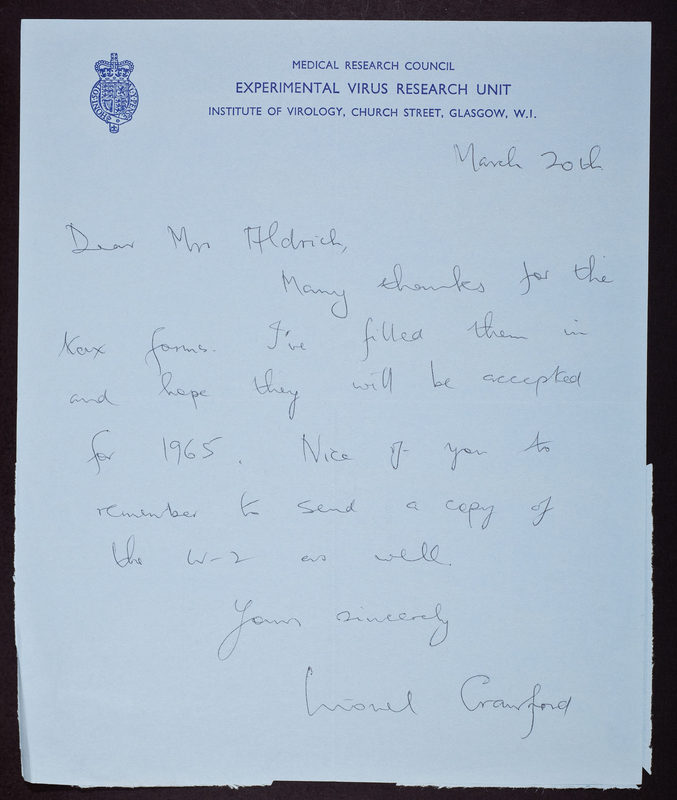 MEDICAL RESEARCH COUNCIL
EXPERIMENTAL VIRUS RESEARCH UNIT
INSTITUTE OF VIROLOGY, CHURCH STREET, GLASGOW, W.1.
March 20th
Dear Mrs Aldrich,
Many thanks for the
tax forms. I've filled them in
and hope they will be accepted
for 1965. Nice of you to
remember to send a copy of
the W-2 as well.
Yours sincerely
Lionel Crawford